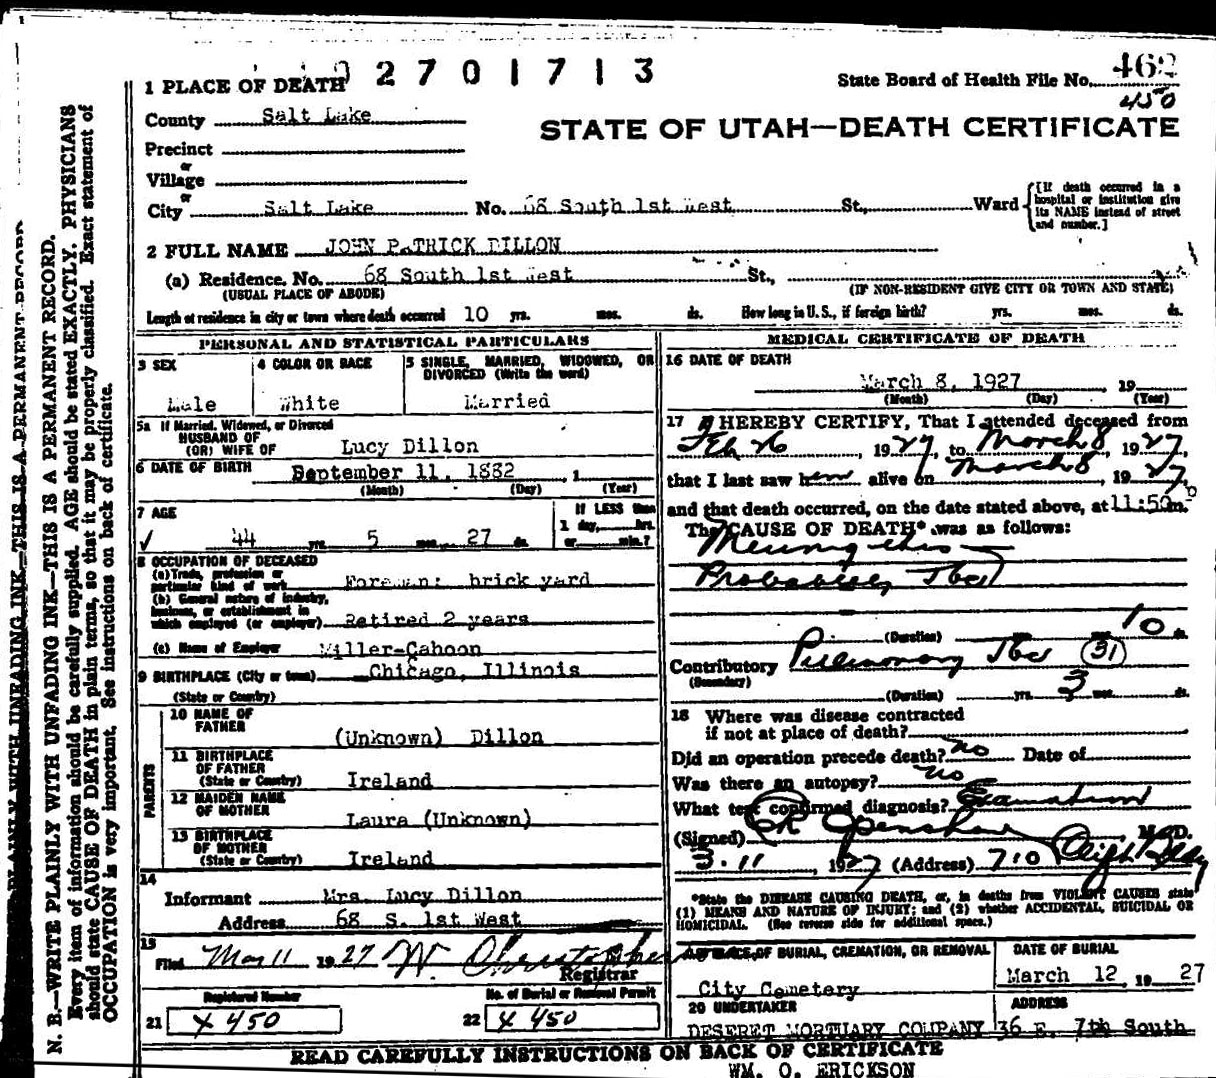 2 7 0 1 7 1 3
1 PLACE OF DEATH
State Board of Health File No. 462
450
County Salt Lake
STATE OF UTAH—DEATH CERTIFICATE
Precinct
or
Village
or
City Salt Lake No. 68 South 1st West St., Ward
[If death occurred in a hospital or institution give its NAME instead of street and number.]
2 FULL NAME JOHN PATRICK DILLON
(a) Residence. No. 68 South 1st West St.,
(USUAL PLACE OF ABODE) (IF NON-RESIDENT GIVE CITY OR TOWN AND STATE)
Length of residence in city or town where death occurred 10 yrs. mos. ds. How long in U. S., if foreign birth? yrs. mos. ds.
PERSONAL AND STATISTICAL PARTICULARS
3 SEX
Male
4 COLOR OR RACE
White
5 SINGLE, MARRIED, WIDOWED, OR
DIVORCED (Write the word)
Married
5a If Married, Widowed, or Divorced
HUSBAND OF
(OR) WIFE OF Lucy Dillon
6 DATE OF BIRTH September 11, 1882, 1
(Month) (Day) (Year)
7 AGE
44 yrs. 5 mos. 27 ds.
If LESS than
1 day, hrs.
or min.?
8 OCCUPATION OF DECEASED
(a) Trade, profession or
particular kind of work Foreman: brick yard
(b) General nature of industry,
business, or establishment in
which employed (or employer) Retired 2 years
(c) Name of Employer Miller-Cahoon
9 BIRTHPLACE (City or town) Chicago, Illinois
(State or Country)
PARENTS
10 NAME OF
FATHER (Unknown) Dillon
11 BIRTHPLACE
OF FATHER
(State or Country) Ireland
12 MAIDEN NAME
OF MOTHER Laura (Unknown)
13 BIRTHPLACE
OF MOTHER
(State or Country) Ireland
14
Informant Mrs. Lucy Dillon
Address 68 S. 1st West
15
Filed Mar 11 1927 W. Christopher
Registrar
Registered Number
21 X 450
No. of Burial or Removal Permit
22 X 450
MEDICAL CERTIFICATE OF DEATH
16 DATE OF DEATH
March 8, 1927, 19
(Month) (Day) (Year)
17 I HEREBY CERTIFY, That I attended deceased from
Feb 26, 1927, to March 8, 1927,
that I last saw him alive on March 8, 1927
and that death occurred, on the date stated above, at 11:50 m.
The CAUSE OF DEATH* was as follows:
Meningitis
Probably Tbc
(Duration) 10 ds.
Contributory Pulmonary Tbc (31)
(Secondary)
(Duration) yrs. 3 mos. ds.
18 Where was disease contracted
if not at place of death?
Did an operation precede death? no Date of
Was there an autopsy? no
What test confirmed diagnosis? Examination
(Signed) Openshaw, M. D.
3.11, 1927 (Address) 710
*State the DISEASE CAUSING DEATH, or, in deaths from VIOLENT CAUSES state
(1) MEANS AND NATURE OF INJURY; and (2) whether ACCIDENTAL, SUICIDAL OR
HOMICIDAL. (See reverse side for additional space.)
PLACE OF BURIAL, CREMATION, OR REMOVAL
City Cemetery
DATE OF BURIAL
March 12, 1927
20 UNDERTAKER
DESERET MORTUARY COMPANY
ADDRESS
36 E. 7th South
READ CAREFULLY INSTRUCTIONS ON BACK OF CERTIFICATE
WM. O. ERICKSON
PLAINLY WITH UNFADING INK—THIS IS A PERMANENT RECORD
N. B.—WRITE PLAINLY WITH UNFADING INK—THIS IS A PERMANENT RECORD.
Every item of information should be carefully supplied. AGE should be stated EXACTLY. PHYSICIANS
should state CAUSE OF DEATH in plain terms, so that it may be properly classified. Exact statement of
OCCUPATION is very important. See instructions on back of certificate.